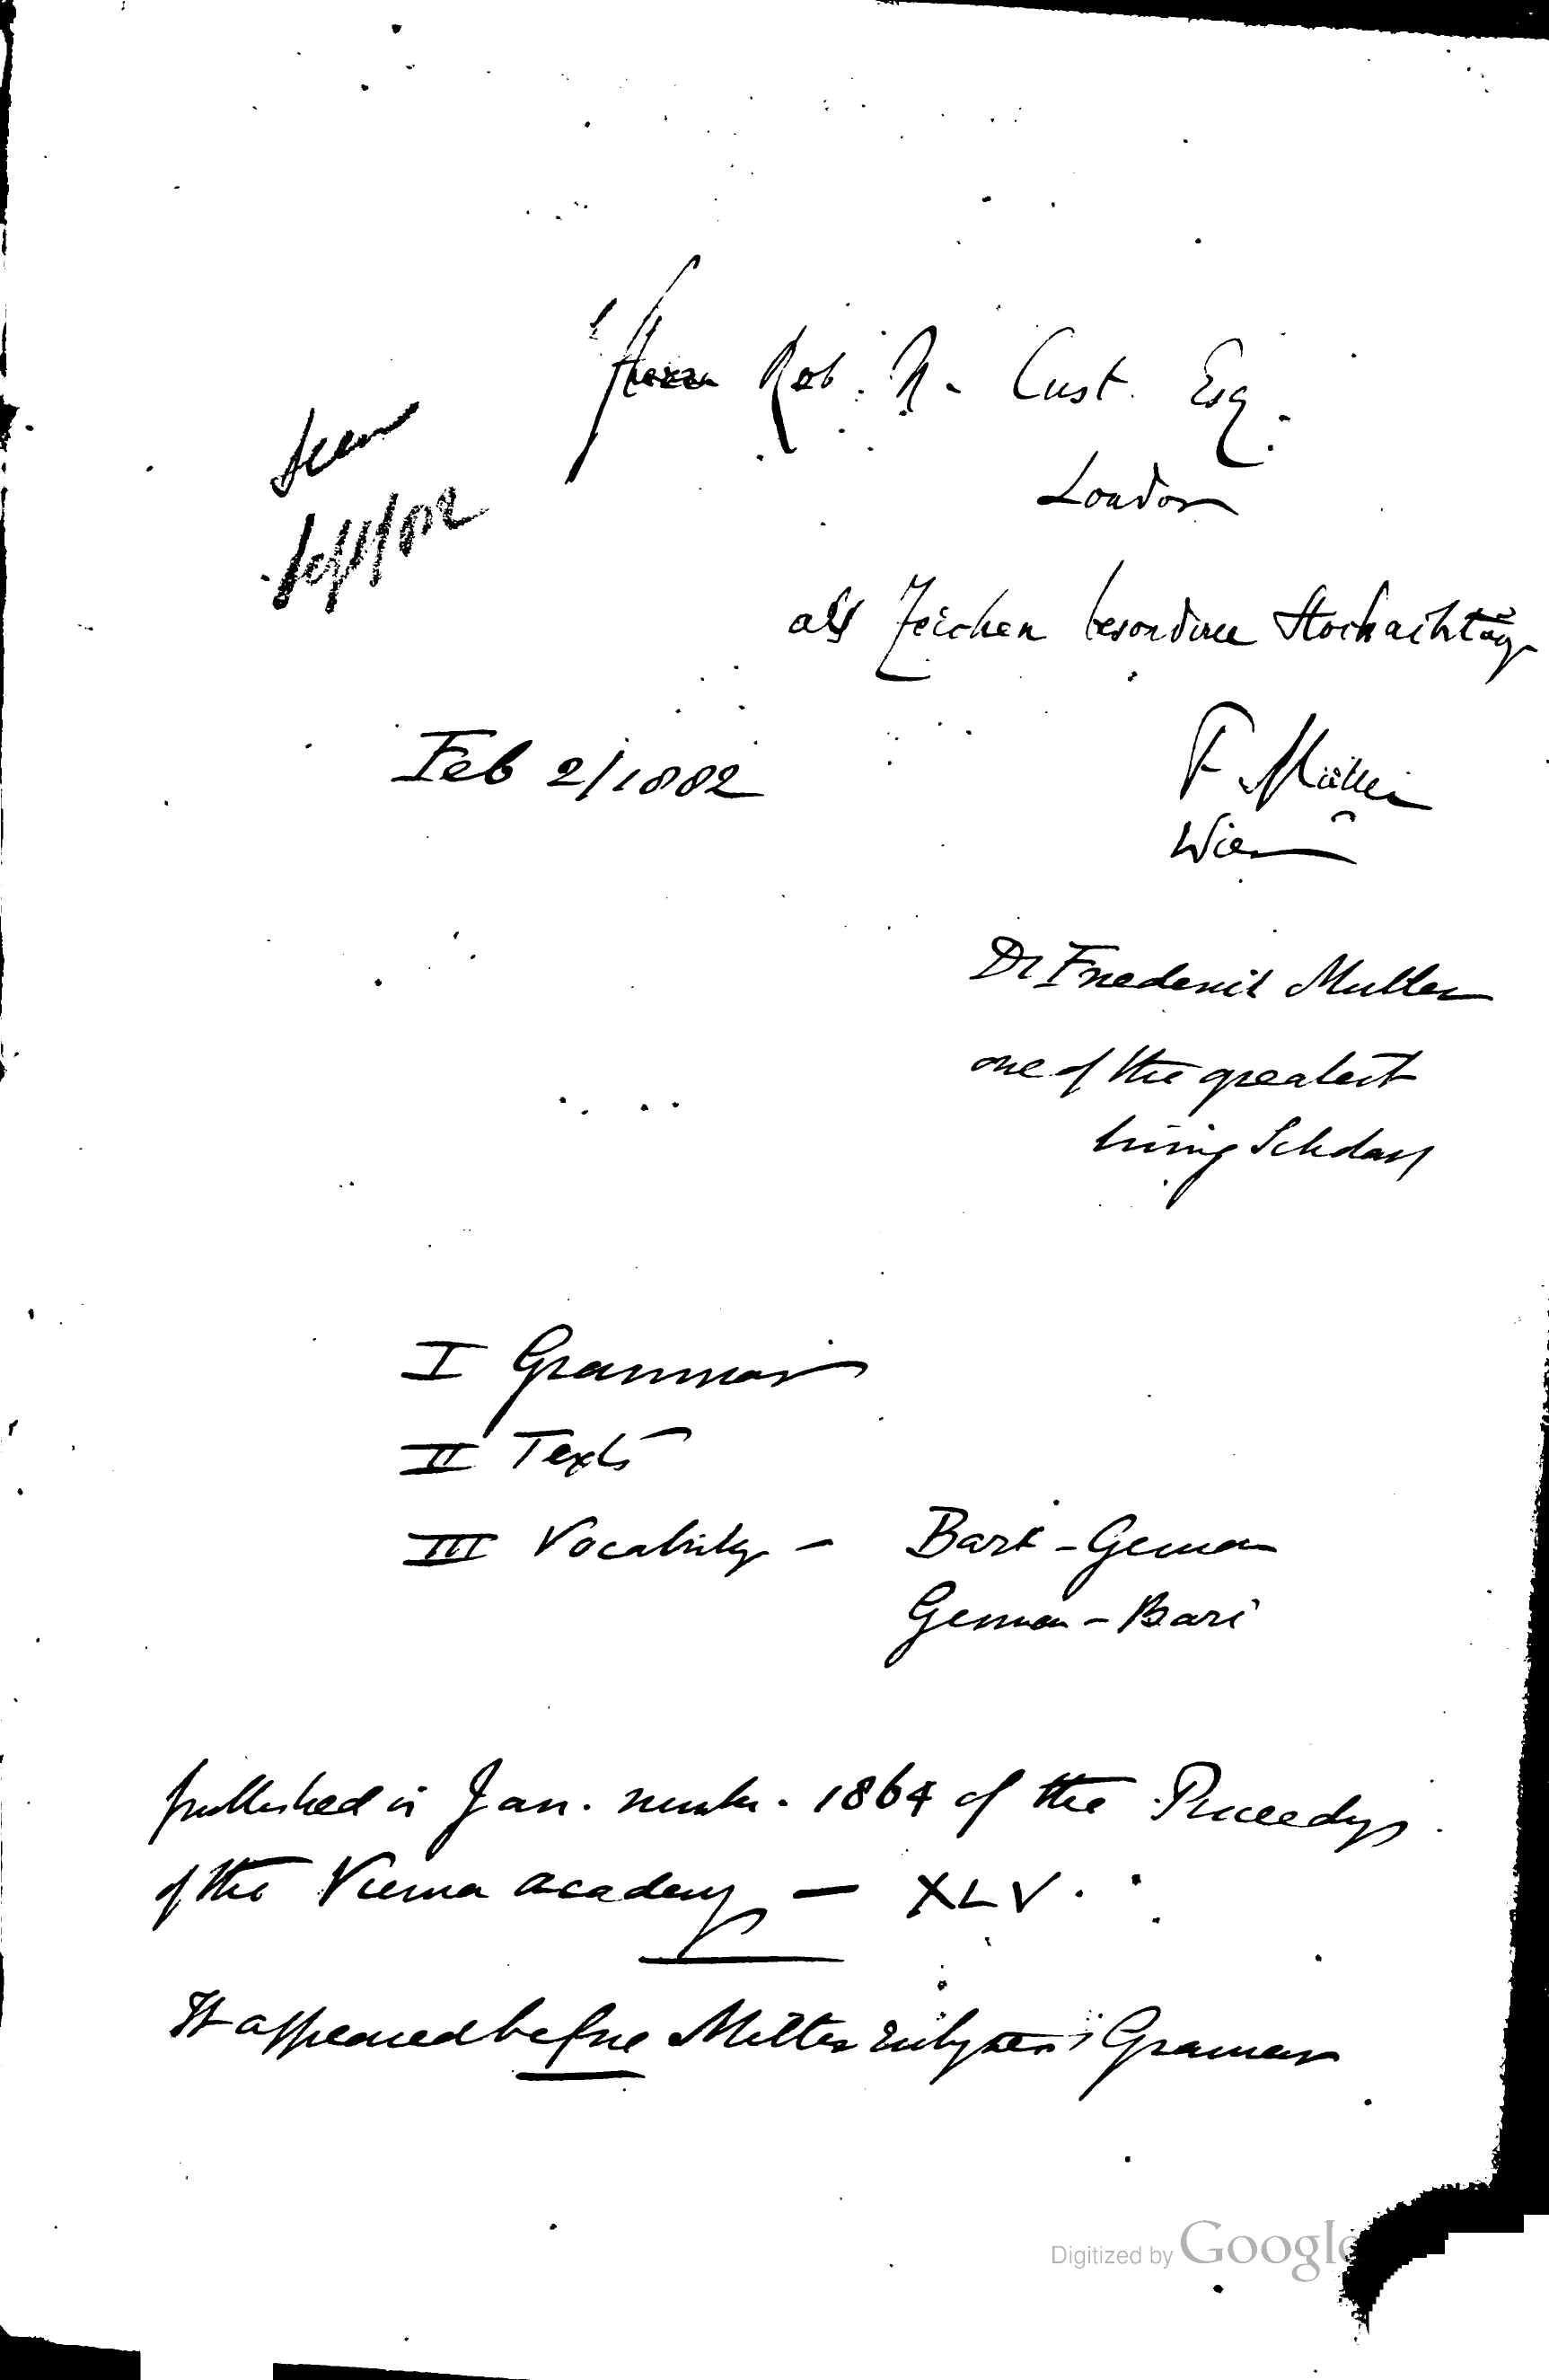 Herrn Rob. N. Cust. Esq.
London
als Zeichen besonderer Hochachtung
Feb 2/1882
F. Müller
Wien
Dr Frederick Muller
one of the greatest
living Scholars
I Grammar
II Texts
III Vocabulary – Bari-German
German-Bari
published in Jan. number. 1864 of the Proceedings
of the Vienna academy – XLV.
It appeared before Mitterrutzner's Grammar
Digitized by Google